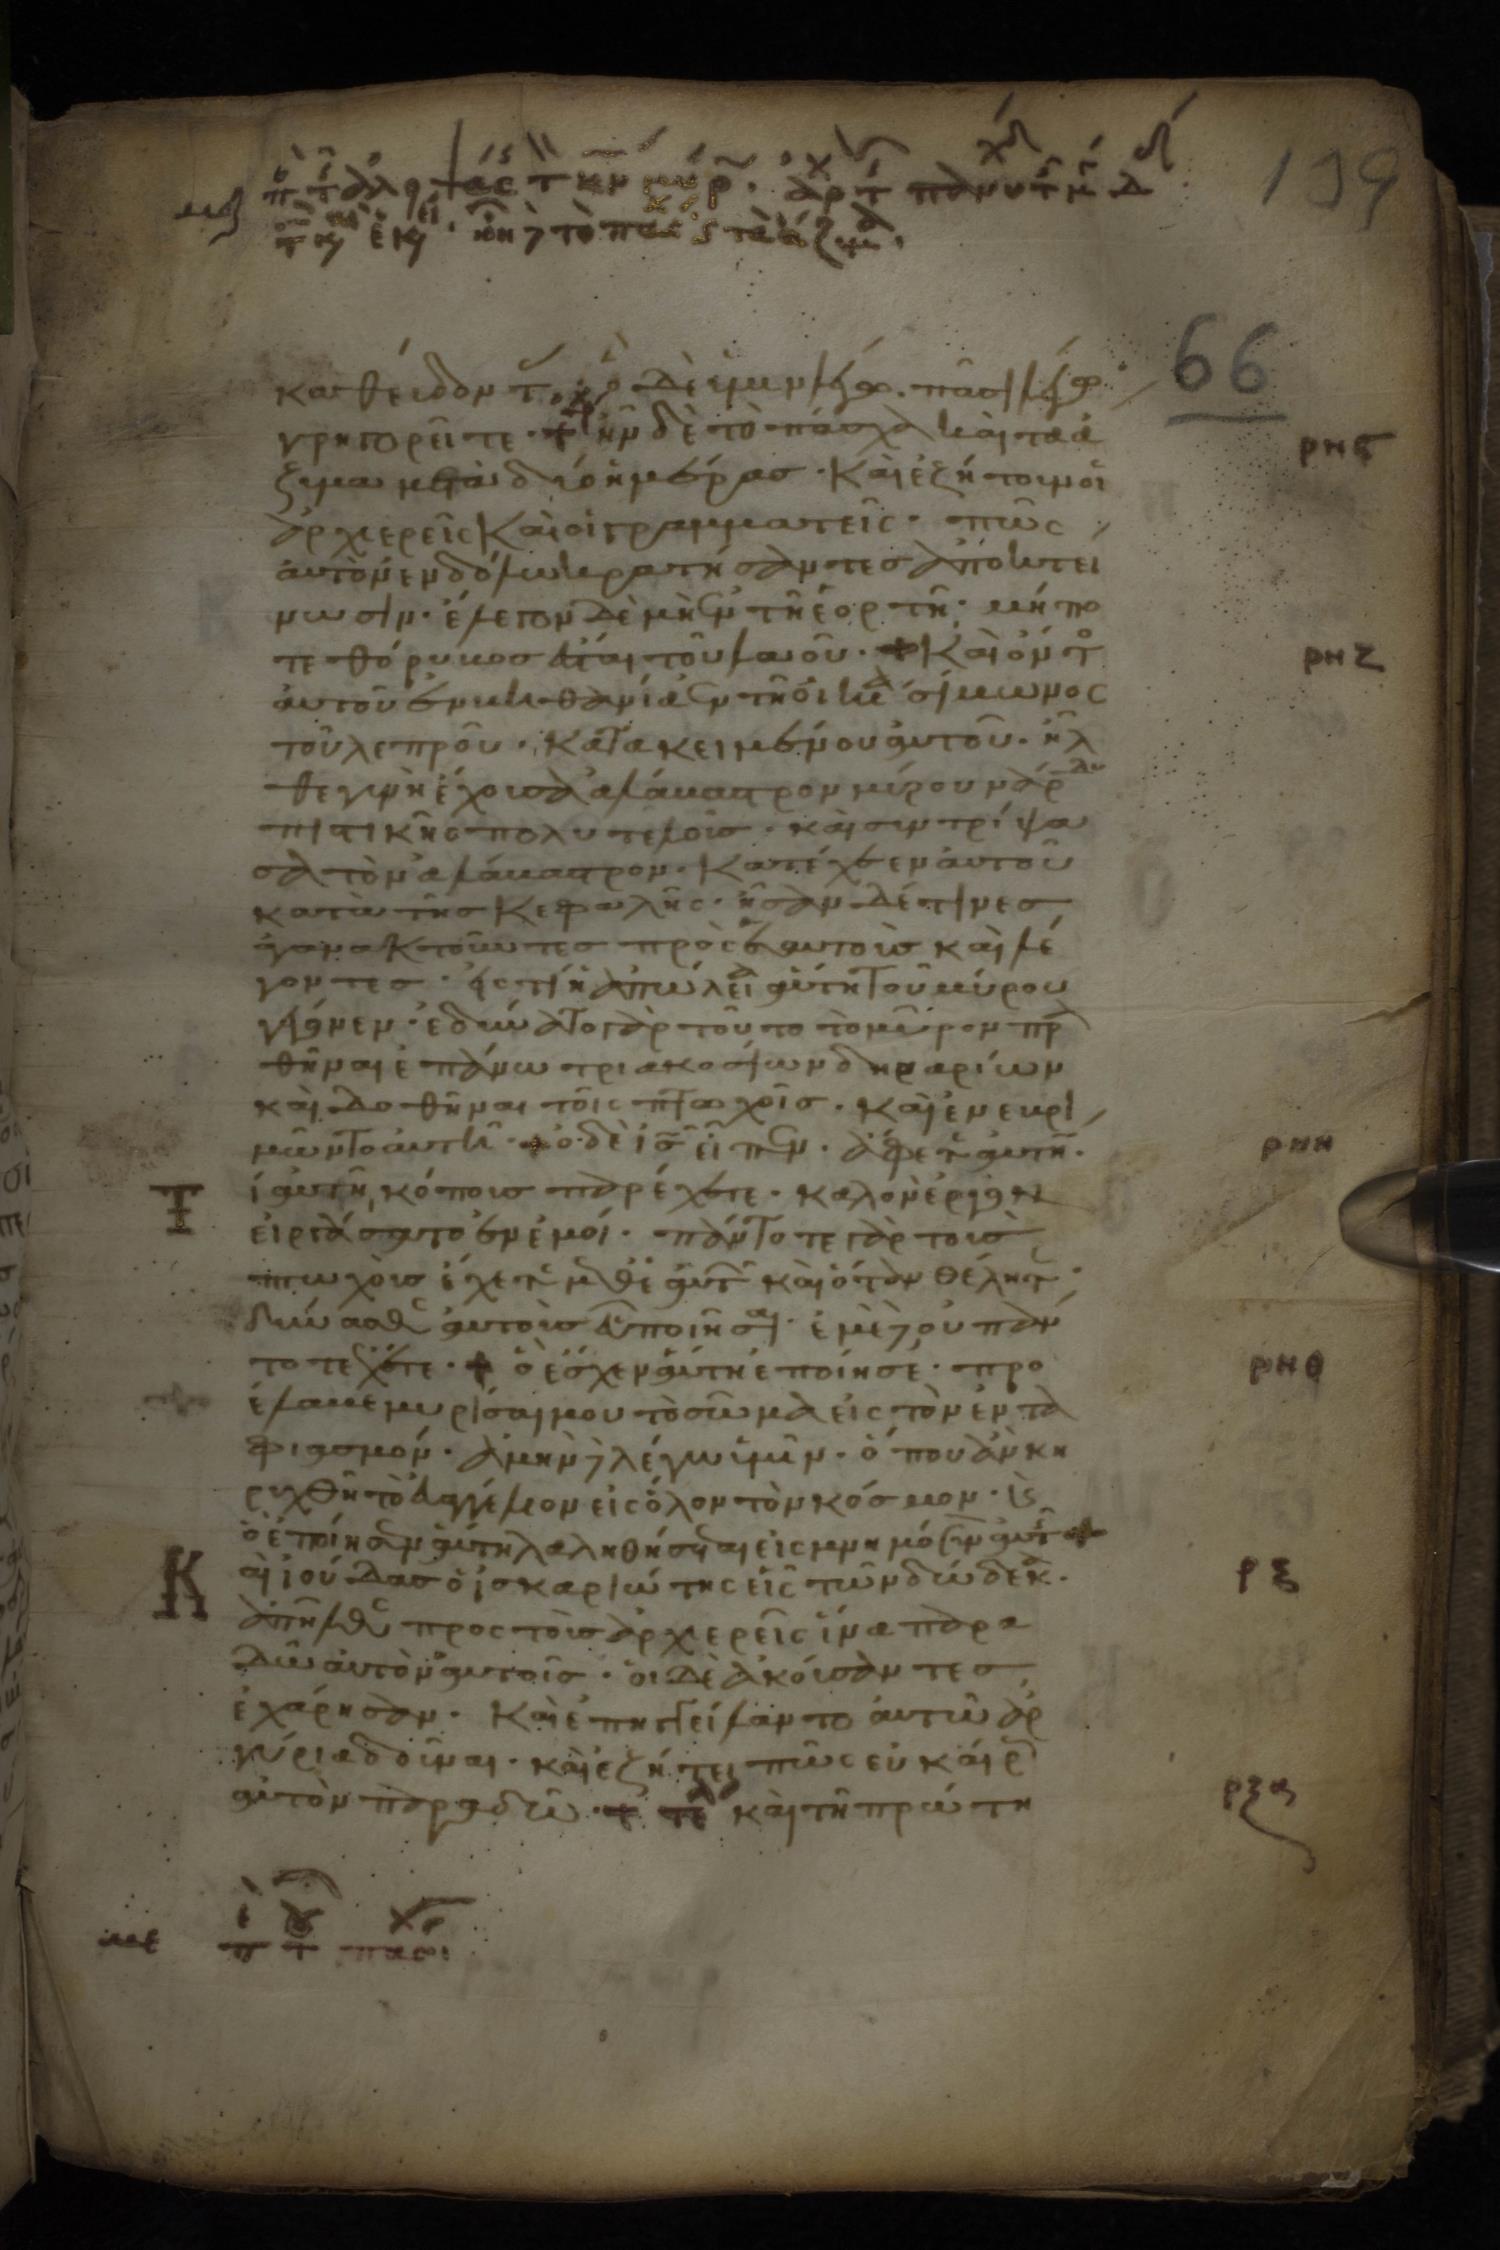 139
66
καθεύδοντ ὃ δὲ ὑμῖν λέγω. πᾶσι λέγω
γρηγορεῖτε. ἦν δὲ τὸ πάσχα καὶ τὰ ἄ
ζυμα μετὰ δύο ἡμέρας. Καὶ ἐζήτουν οἱ
ἀρχιερεῖς καὶ οἱ γραμματεῖς. πῶς
αὐτὸν ἐν δόλω κρατήσαντες ἀποκτεί
νωσιν. ἔλεγον δὲ μὴ ἐν τῆ ἑορτῆ. μήπο
τε θόρυβος ἔσται τοῦ λαοῦ. Καὶ ὄντ
αὐτοῦ ἐν βηθανία ἐν τῆ οἰκία σίμωνος
τοῦ λεπροῦ. κατακειμένου αὐτοῦ. ἦλ
θε γυνὴ ἔχουσα ἀλάβαστρον μύρου νάρδου
πιστικῆς πολυτελοῦς. καὶ συντρίψα
σα τὸν ἀλάβαστρον. Κατέχεεν αὐτοῦ
κατὰ τῆς κεφαλῆς. ἦσαν δέ τινες
ἀγανακτοῦντες πρὸς ἑαυτοὺς καὶ λέ
γοντες. εἰς τί ἡ ἀπώλεια αὕτη τοῦ μύρου
γέγονεν. ἐδύνατο γὰρ τοῦτο τὸ μύρον πρα
θῆναι ἐπάνω τριακοσίων δηναρίων
καὶ δοθῆναι τοῖς πτωχοῖς. καὶ ἐνεβρι
μῶντο αὐτῆ. ὁ δὲ ις εἶπεν. ἄφετε αὐτήν.
τί αὐτῆ κόπους παρέχετε. καλὸν ἔργον
εἰργάσατο ἐν ἐμοί. πάντοτε γὰρ τοὺς
πτωχοὺς ἔχετε μεθ ἑαυτ καὶ ὅταν θέλητε
δύνασθε αὐτοὺς εὖ ποιῆσαι. ἐμὲ δὲ οὐ πάν
τοτε ἔχετε. ὃ ἔσχεν αὕτη ἐποίησε. προ
έλαβε μυρίσαι μου τὸ σῶμα εἰς τὸν ἐντα
φιασμόν. ἀμὴν δὲ λέγω ὑμῖν. ὅπου ἂν κη
ρυχθῆ τὸ εὐαγγέλιον εἰς ὅλον τὸν κόσμον. καὶ
ὃ ἐποίησεν αὕτη λαληθήσεται εἰς μνημόσυνον αὐτ
Καὶ ἰούδας ὁ ἰσκαριώτης εἷς τῶν δώδεκ.
ἀπῆλθε πρὸς τοὺς ἀρχιερεῖς ἵνα παρα
δῶ αὐτὸν αὐτοῖς. οἱ δὲ ἀκούσαντες
ἐχάρησαν. Καὶ ἐπηγγείλαντο αὐτῶ ἀρ
γύρια δοῦναι. καὶ ἐζήτει πῶς εὐκαίρ
αὐτὸν παραδῶ. τέλ καὶ τῆ πρώτη
ρνς
ρνζ
ρνη
ρνθ
ρξ
ρξα
με π τ πασχ